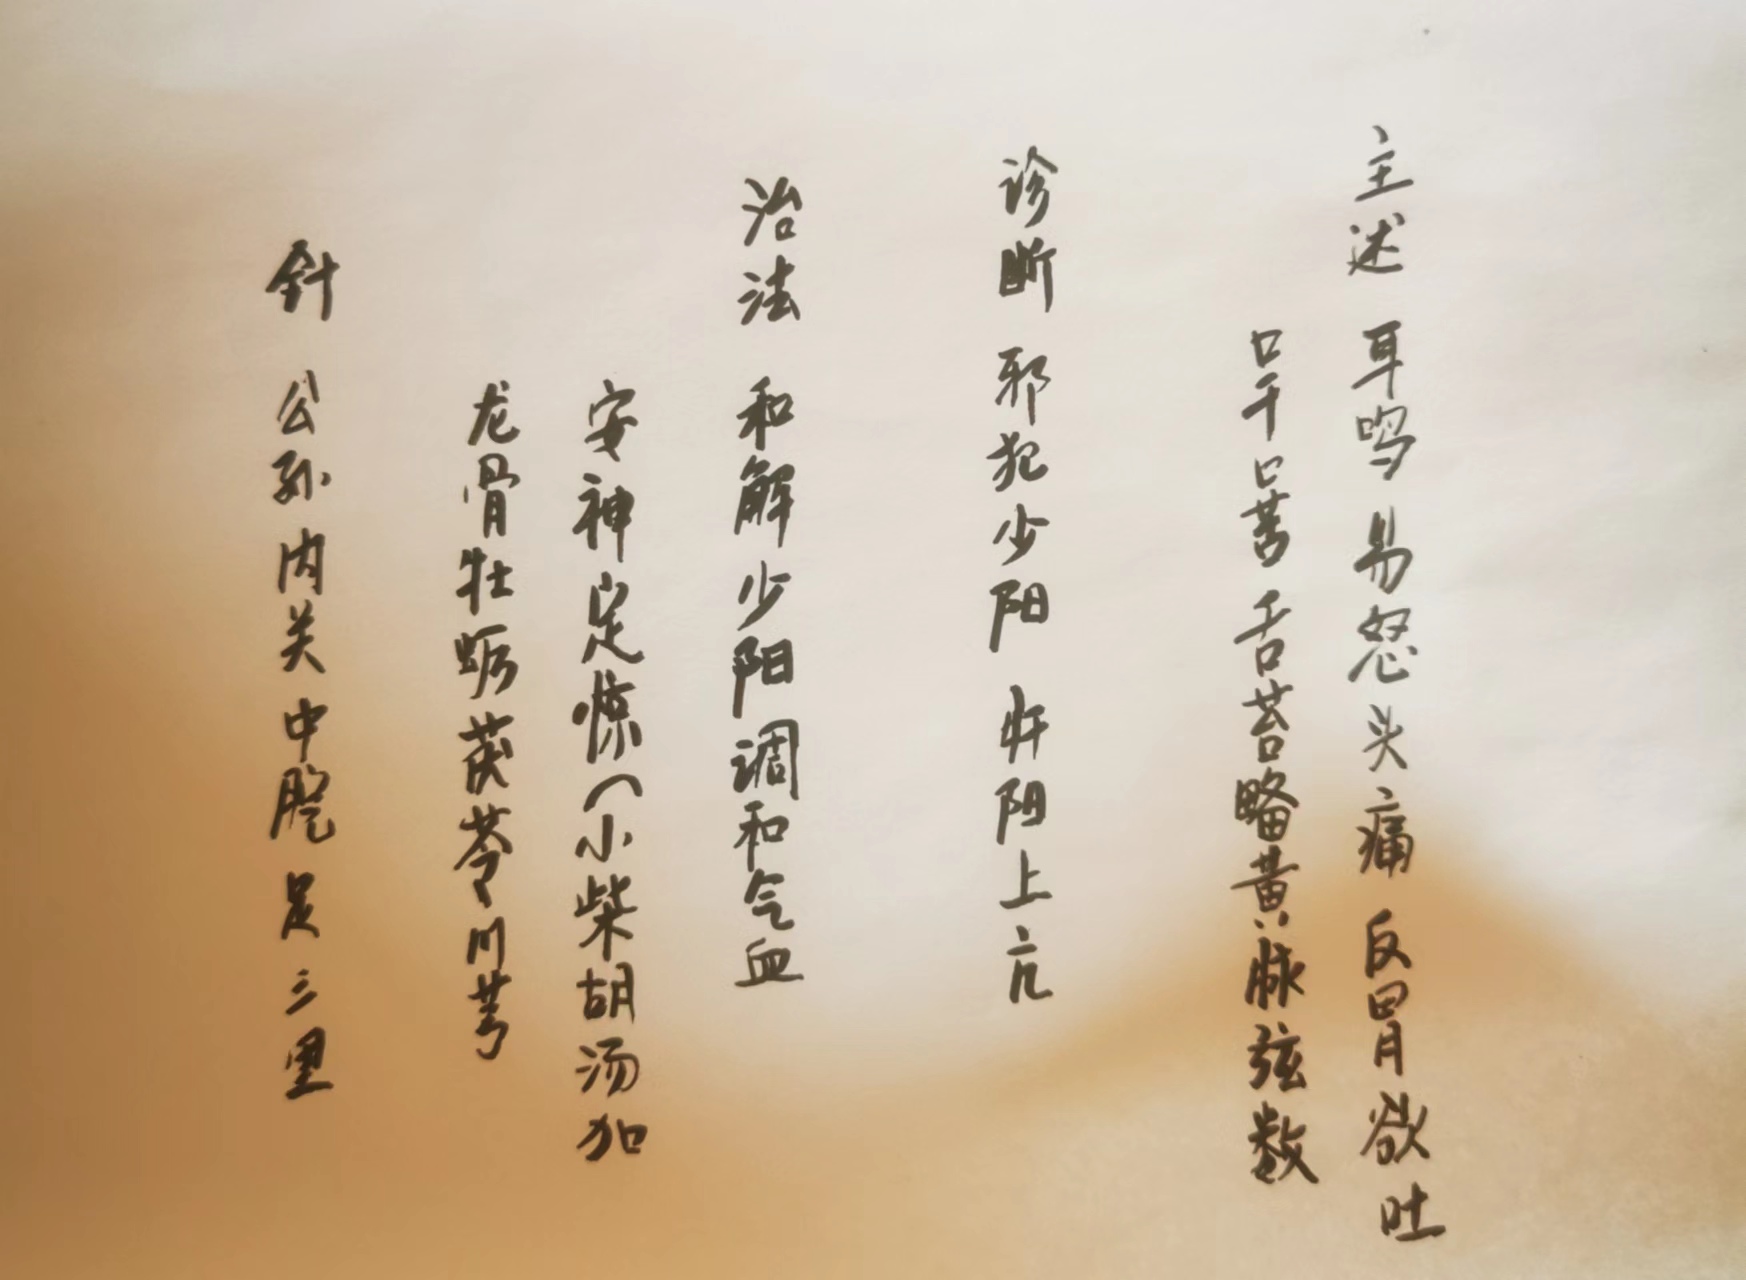 主述 耳鸣 易怒 头痛 反胃 欲吐
口干 口苦 舌苔略黄 脉弦数
诊断 邪犯少阳 肝阳上亢
治法 和解少阳调和气血
安神定惊（小柴胡汤加
龙骨牡蛎茯苓川芎
針 公孙 内关 中脘 足三里